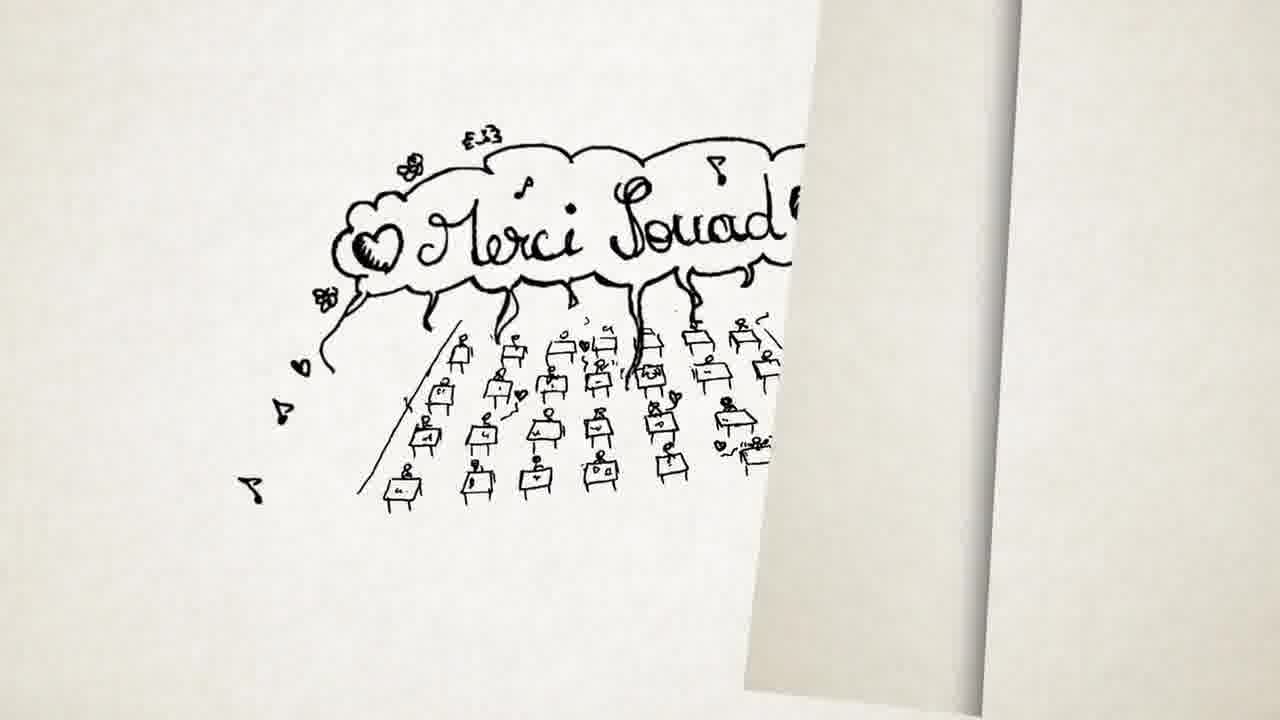 Merci Souad